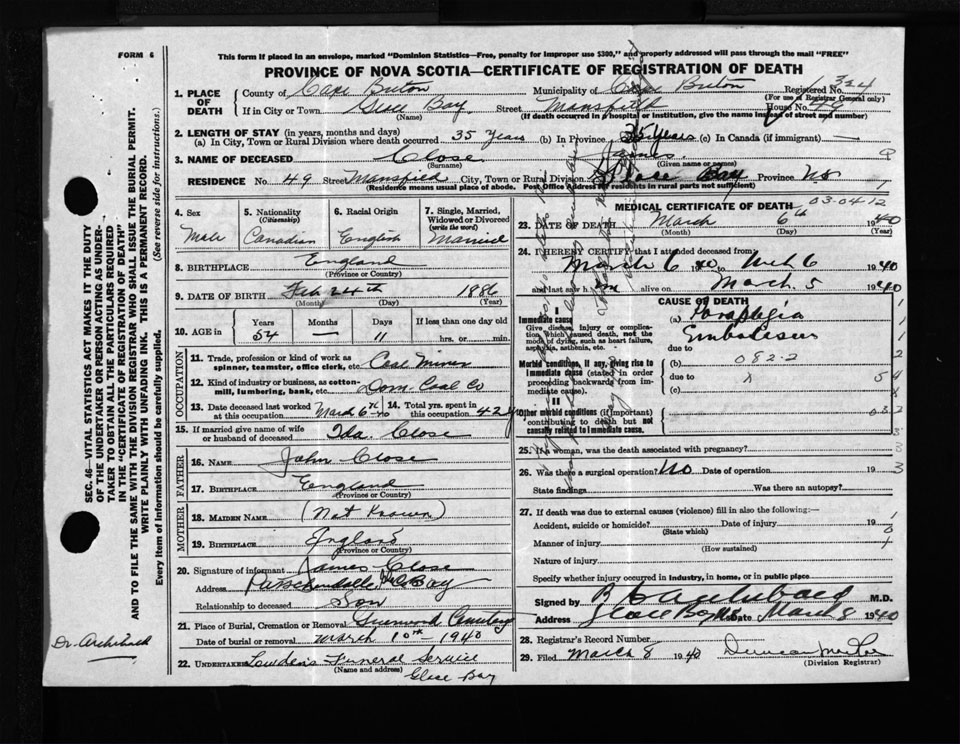 FORM 6
This form if placed in an envelope, marked "Dominion Statistics—Free, penalty for improper use $300," and properly addressed will pass through the mail "FREE"
PROVINCE OF NOVA SCOTIA—CERTIFICATE OF REGISTRATION OF DEATH
1. PLACE OF DEATH
County of Cape Breton Municipality of Cape Breton Registered No. 324
(For use of Registrar General only)
If in City or Town Glace Bay Street Mansfield House No. 49
(Name) (If death occurred in a hospital or institution, give the name instead of street and number)
2. LENGTH OF STAY (in years, months and days)
(a) In City, Town or Rural Division where death occurred 35 Years (b) In Province 35 Years (c) In Canada (if immigrant) —
3. NAME OF DECEASED Close James
(Surname) (Given name or names)
RESIDENCE No. 49 Street Mansfield City, Town or Rural Division Glace Bay Province NS
(Residence means usual place of abode. Post Office Address for residents in rural parts not sufficient)
4. Sex
Male
5. Nationality
(Citizenship)
Canadian
6. Racial Origin
English
7. Single, Married, Widowed or Divorced
(write the word)
Married
8. BIRTHPLACE England
(Province or Country)
9. DATE OF BIRTH Feb 24th 1886
(Month) (Day) (Year)
10. AGE in Years Months Days If less than one day old
54 — 11 hrs. or min.
OCCUPATION
11. Trade, profession or kind of work as spinner, teamster, office clerk, etc. Coal Miner
12. Kind of industry or business, as cotton-mill, lumbering, bank, etc. Dom. Coal Co
13. Date deceased last worked at this occupation March 6th 40
14. Total yrs. spent in this occupation 42 y
15. If married give name of wife or husband of deceased Ida Close
FATHER
16. NAME John Close
17. BIRTHPLACE England
(Province or Country)
MOTHER
18. MAIDEN NAME (Not Known)
19. BIRTHPLACE England
(Province or Country)
20. Signature of informant James Close
Address Passchendaele Gl Bay
Relationship to deceased Son
21. Place of Burial, Cremation or Removal Greenwood Cemetery
Date of burial or removal March 10th 1940
22. UNDERTAKER Funeral Service
(Name and address)
Glace Bay
MEDICAL CERTIFICATE OF DEATH
03-04 12
23. DATE OF DEATH March 6th 1940
(Month) (Day) (Year)
24. I HEREBY CERTIFY that I attended deceased from:
March 6 1940 to Mch 6 1940
and last saw h im alive on March 5 1940
CAUSE OF DEATH
I
Immediate cause
Give disease, injury or complication, which caused death, not the mode of dying, such as heart failure, asphyxia, asthenia, etc.
(a) Paraplegia
Embolism
due to
Morbid conditions, if any, giving rise to immediate cause (stated in order proceeding backwards from immediate cause).
(b) 082-2
due to
(c)
II
Other morbid conditions (if important) contributing to death but not causally related to immediate cause.
25. If a woman, was the death associated with pregnancy?
26. Was there a surgical operation? No Date of operation 19
State findings Was there an autopsy?
27. If death was due to external causes (violence) fill in also the following:—
Accident, suicide or homicide? Date of injury 19
(State which)
Manner of injury
(How sustained)
Nature of injury
Specify whether injury occurred in industry, in home, or in public place
Signed by Archibald M.D.
Address Glace Bay NS Date March 8 1940
28. Registrar's Record Number
29. Filed March 8 1940 Duncan
(Division Registrar)
SEC. 46—VITAL STATISTICS ACT MAKES IT THE DUTY OF THE UNDERTAKER OR PERSON ACTING AS UNDERTAKER TO OBTAIN ALL THE PARTICULARS REQUIRED IN THE "CERTIFICATE OF REGISTRATION OF DEATH" AND TO FILE THE SAME WITH THE DIVISION REGISTRAR WHO SHALL ISSUE THE BURIAL PERMIT.
WRITE PLAINLY WITH UNFADING INK. THIS IS A PERMANENT RECORD.
Every item of information should be carefully supplied. (See reverse side for instructions.)
Dr. Archibald